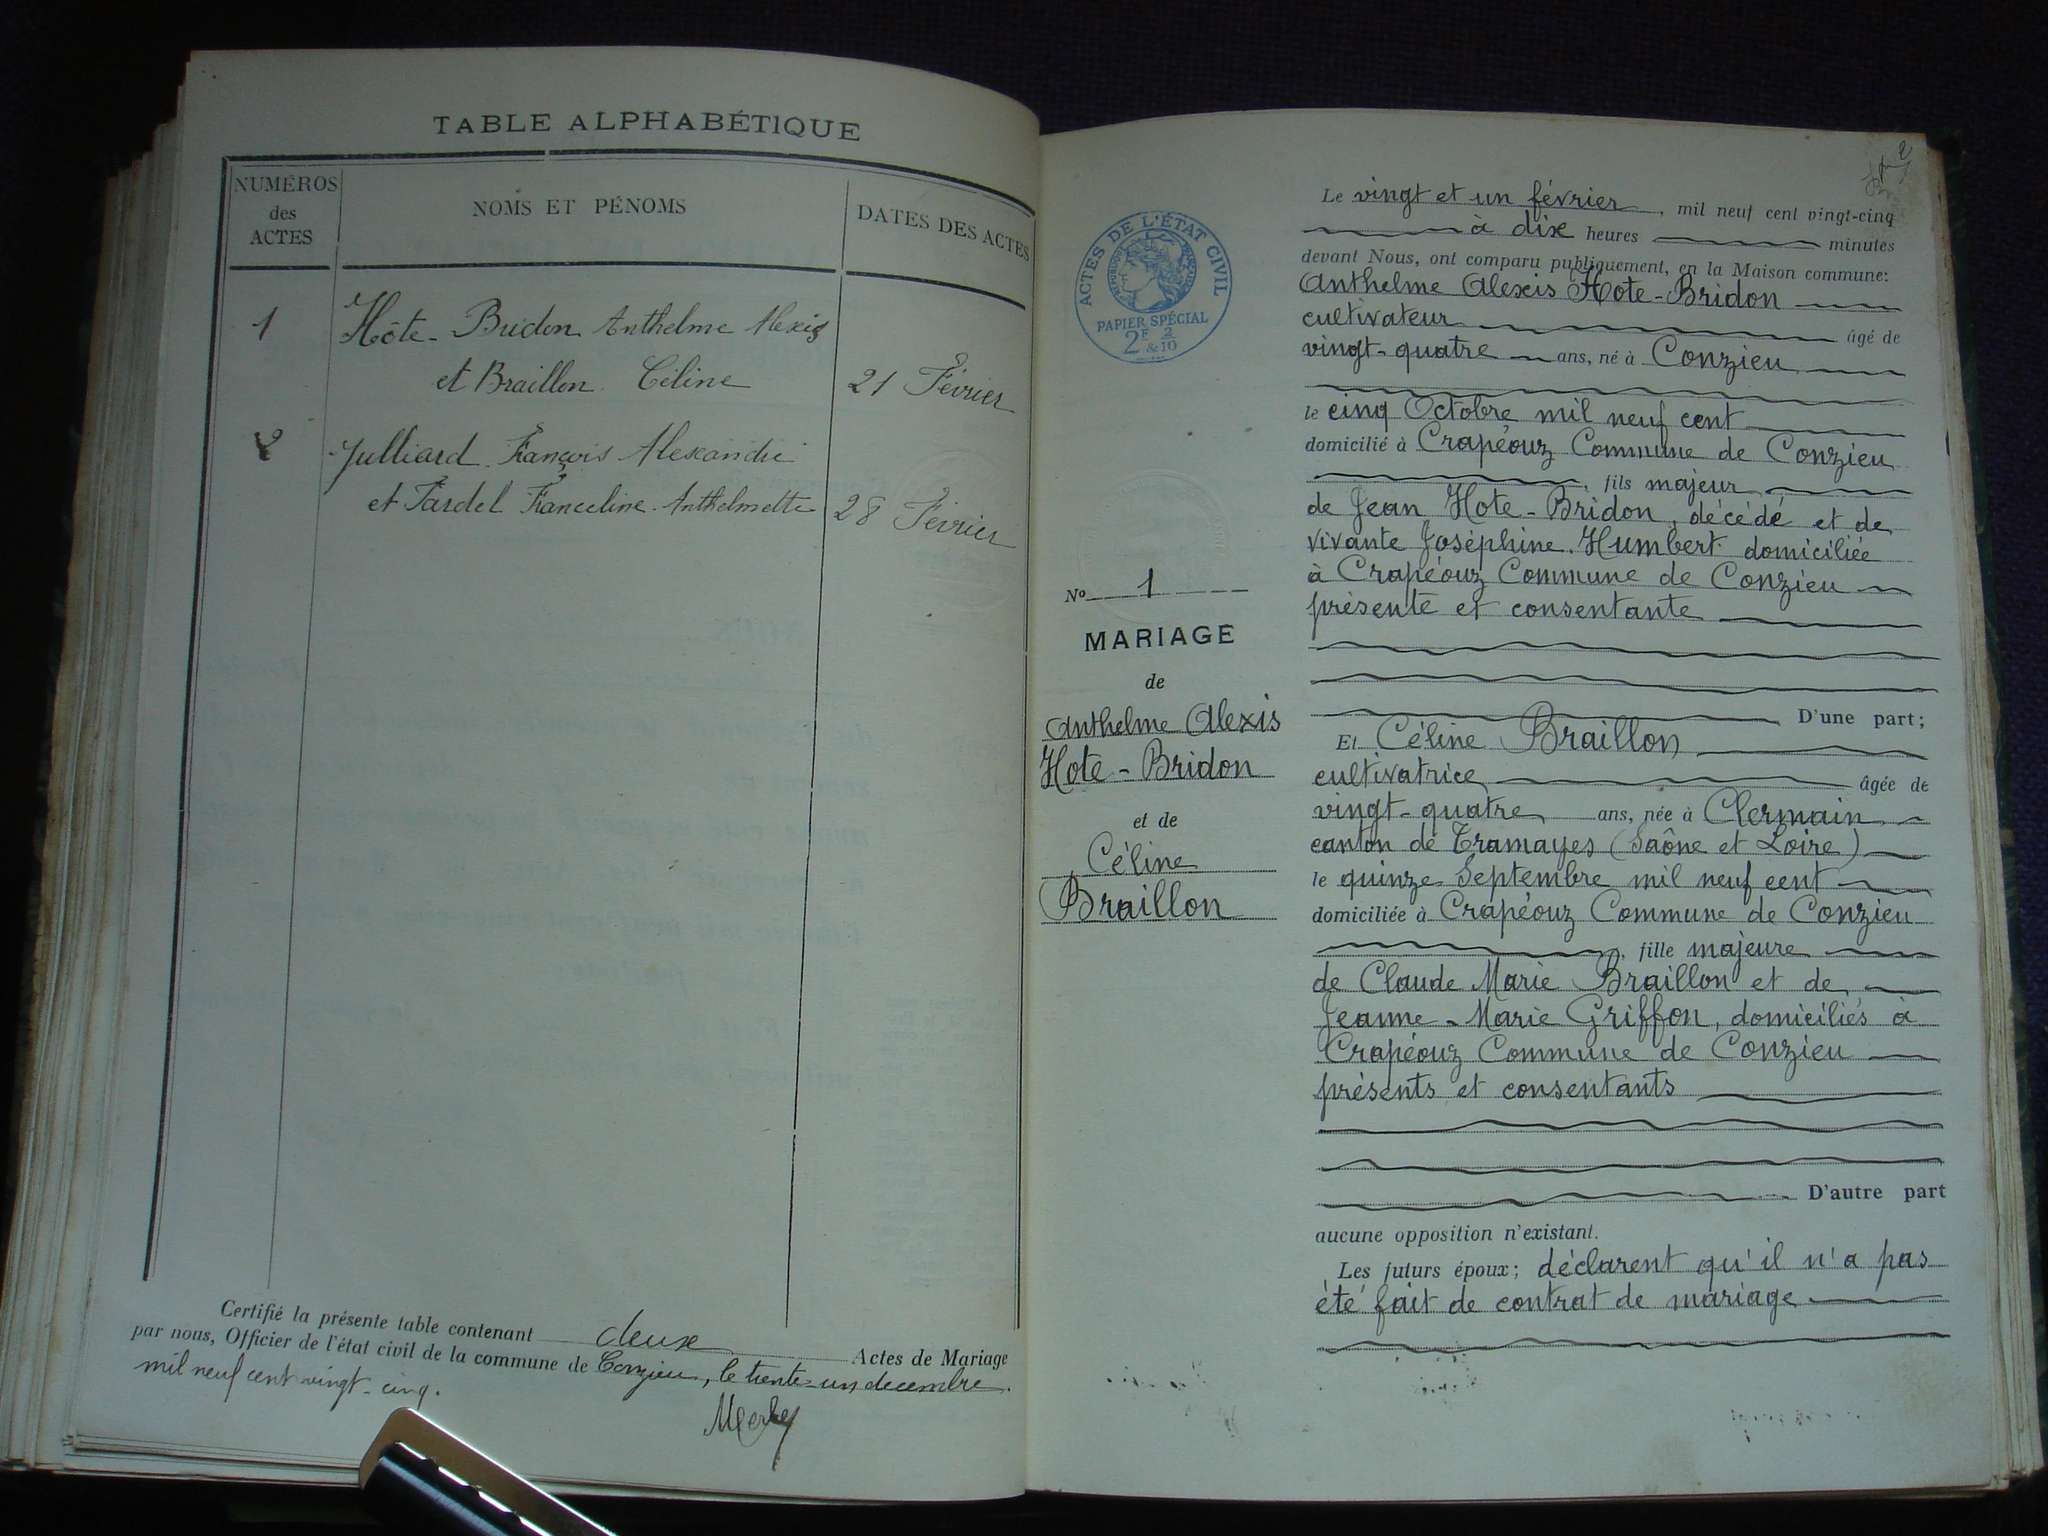 TABLE ALPHABÉTIQUE
NUMÉROS
des
ACTES
NOMS ET PÉNOMS
DATES DES ACTES
1
Hôte-Bridon Anthelme Alexis
et Braillon Céline
21 Février
2
Julliard François Alexandre
et Tardel Franceline Anthelmette
28 Février
Certifié la présente table contenant deux Actes de Mariage
par nous, Officier de l'état civil de la commune de Conzieu, le trente-un decembre
mil neuf cent vingt-cinq.
2
ACTES DE L'ÉTAT CIVIL
PAPIER SPÉCIAL
2F & 2/10
No 1
MARIAGE
de
Anthelme Alexis
Hote-Bridon
et de
Céline
Braillon
Le vingt et un février, mil neuf cent vingt-cinq
à dix heures minutes
devant Nous, ont comparu publiquement, en la Maison commune:
Anthelme Alexis Hote-Bridon
cultivateur âgé de
vingt-quatre ans, né à Conzieu
le cinq Octobre mil neuf cent
domicilié à Crapéouz Commune de Conzieu
, fils majeur
de Jean Hote-Bridon, décédé et de
vivante Joséphine Humbert domiciliée
à Crapéouz Commune de Conzieu
présente et consentante
D'une part;
Et Céline Braillon
cultivatrice âgée de
vingt-quatre ans, née à Clermain
canton de Tramayes (Saône et Loire)
le quinze Septembre mil neuf cent
domiciliée à Crapéouz Commune de Conzieu
, fille majeure
de Claude Marie Braillon et de
Jeanne-Marie Griffon, domiciliés à
Crapéouz Commune de Conzieu
présents et consentants
D'autre part
aucune opposition n'existant.
Les futurs époux; déclarent qu'il n'a pas
été fait de contrat de mariage